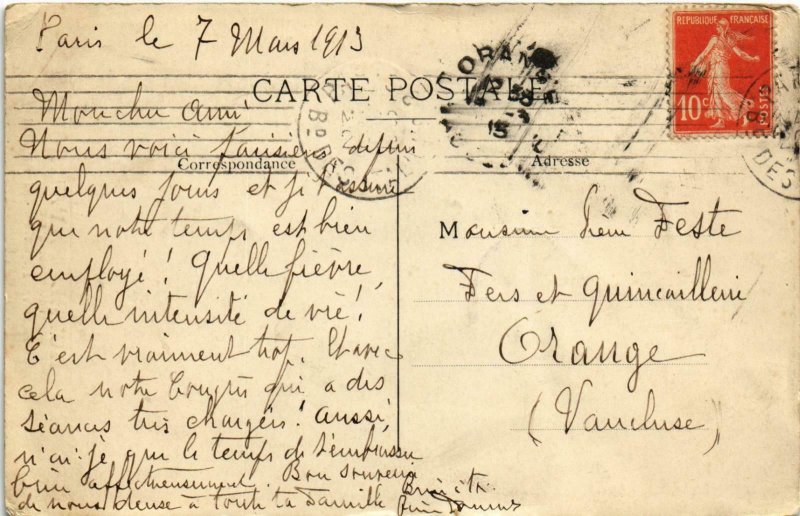 Paris le 7 Mars 1913
CARTE POSTALE
REPUBLIQUE FRANÇAISE
10c POSTES
ORANGE
Mon cher ami
Nous voici Parisiens depuis
Correspondance
Adresse
quelques jours et je t'assure
que notre temps est bien
employé! Quelle fièvre,
quelle intensité de vie!
C'est vraiment trop. Et avec
cela notre Congrès qui a des
séances très chargées! Aussi
n'ai-je que le temps de t'embrasser
bien affectueusement. Bon souvenir
de nous deux à toute ta famille
Monsieur Feste
Fers et Quincaillerie
Orange
(Vaucluse)